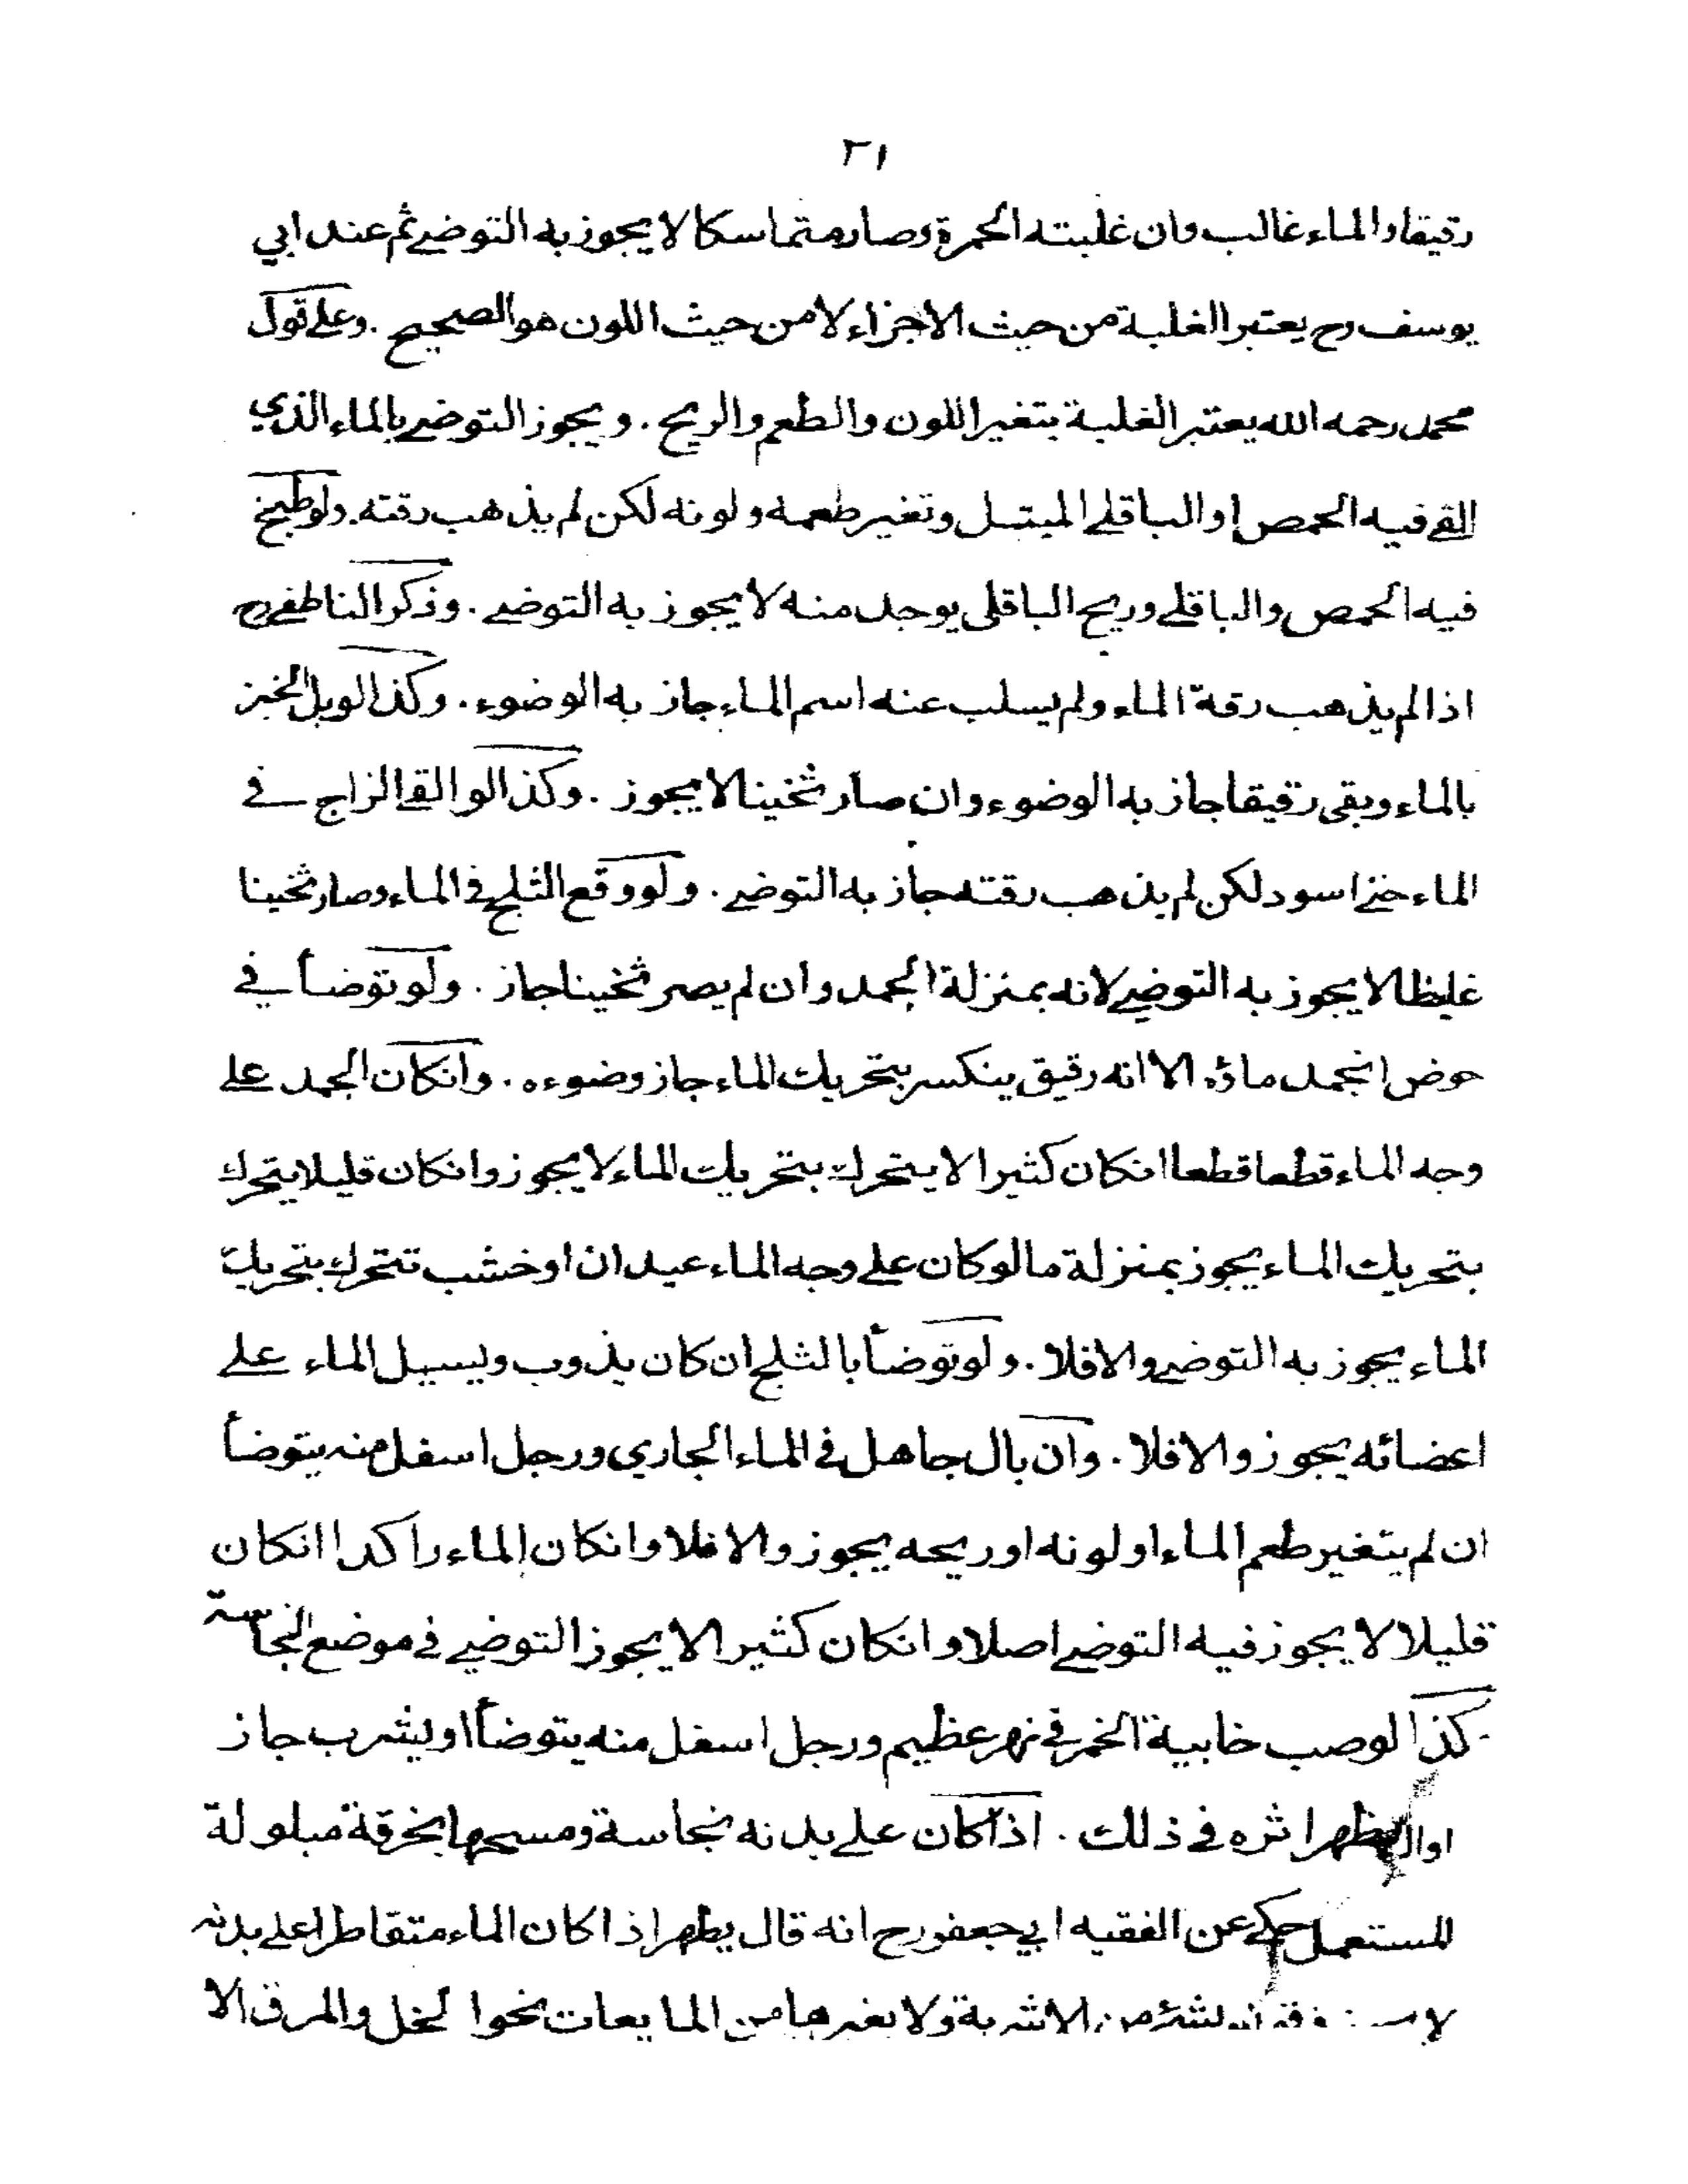 ٢١
رقيقا والماء غالب وان غلبته الحمرة وصار متماسكا لا يجوز به التوضي ثم عند ابي
يوسف رح يعتبر الغلبة من حيث الاجزاء لا من حيث اللون هو الصحيح . وعلى قول
محمد رحمه الله يعتبر الغلبة بتغير اللون والطعم والريح . ويجوز التوضي بالماء الذي
القي فيه الحمص او الباقلي المبتل وتغير طعمه ولونه لكن لم يذهب رقته . ولو طبخ
فيه الحمص والباقلي وريح الباقلى يوجد منه لا يجوز به التوضي . وذكر الناطفي رح
اذا لم يذهب رقة الماء ولم يسلب عنه اسم الماء جاز به الوضوء . وكذا لو بل الخبز
بالماء وبقى رقيقا جاز به الوضوء وان صار ثخينا لا يجوز . وكذا لو القي الزاج في
الماء حتى اسود لكن لم يذهب رقته جاز به التوضي . ولو وقع الثلج في الماء وصار ثخينا
غليظا لا يجوز به التوضي لانه بمنزلة الجمد وان لم يصر ثخينا جاز . ولو توضأ في
حوض انجمد ماؤه الا انه رقيق ينكسر بتحريك الماء جاز وضوءه . وانكان الجمد على
وجه الماء قطعا قطعا انكان كثيرا لا يتحرك بتحريك الماء لا يجوز وانكان قليلا يتحرك
بتحريك الماء يجوز بمنزلة ما لو كان على وجه الماء عيدان او خشب تتحرك بتحريك
الماء يجوز به التوضي والا فلا . ولو توضأ بالثلج ان كان يذوب ويسيل الماء على
اعضائه يجوز والا فلا . وان بال جاهل في الماء الجاري ورجل اسفل منه يتوضأ
ان لم يتغير طعم الماء او لونه او ريحه يجوز والا فلا وانكان الماء راكدا انكان
قليلا لا يجوز فيه التوضي اصلا وانكان كثيرا لا يجوز التوضي في موضع النجاسة
كذا لو صب خابية الخمر في نهر عظيم ورجل اسفل منه يتوضأ او يشرب جاز
يظهر اثره في ذلك . اذا كان على بدنه نجاسة ومسحها بخرقة مبلولة
المستعمل حكي عن الفقيه ابي جعفر رح انه قال يطهر اذا كان الماء متقاطرا على بدنه
لا بشئ من الاشربة ولا بغيرها من المايعات نحو الخل والمرق الا